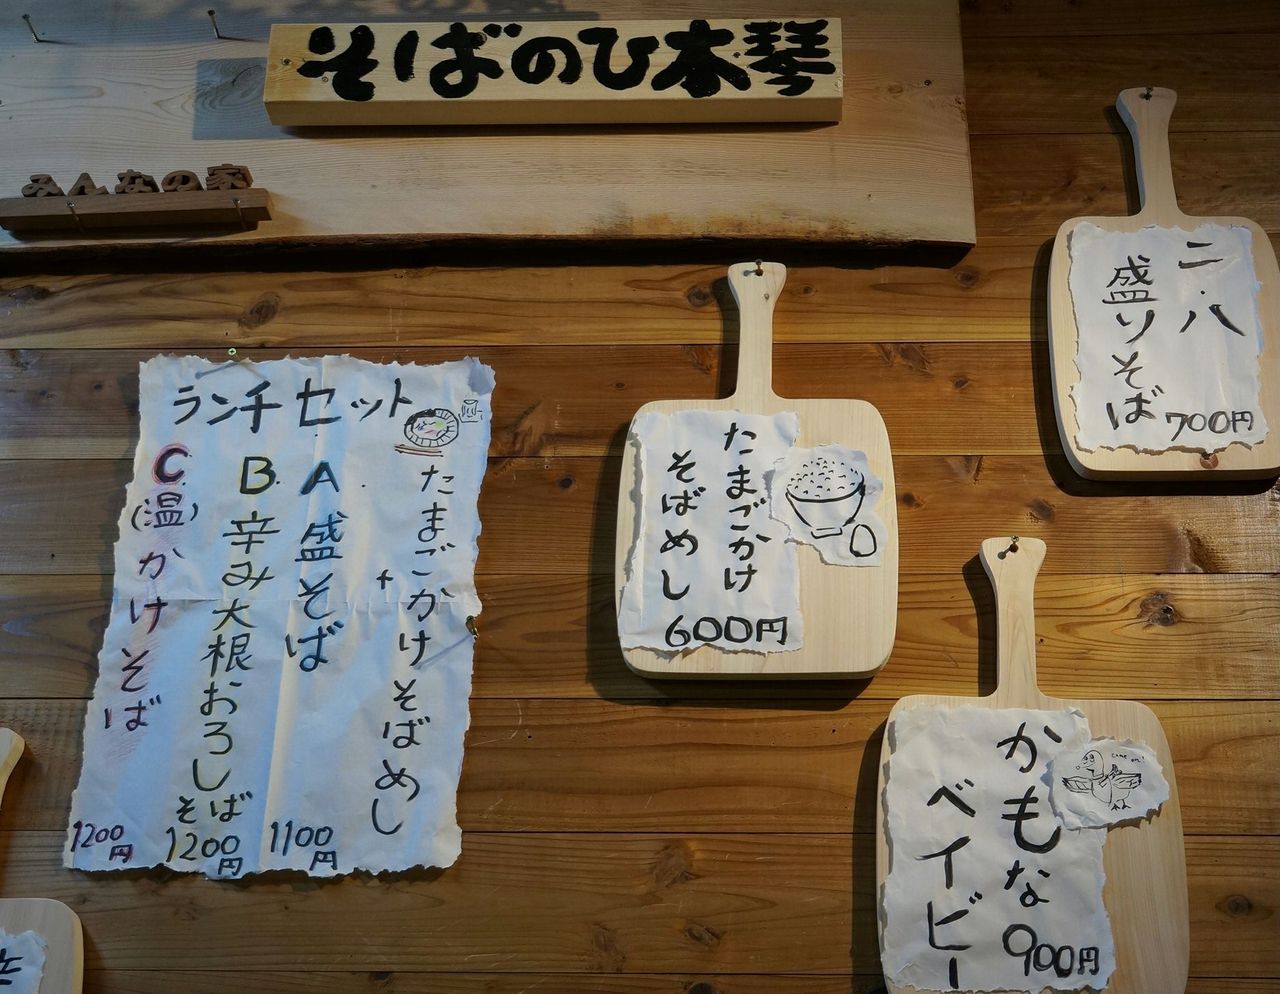 そばのひ本琴
みんなの家
二・八
盛りそば
700円
たまごかけ
そばめし
600円
かもな
ベイビー
900円
COME ON!
ランチセット
たまごかけそばめし
+
A 盛そば
1100円
B 辛み大根おろしそば
1200円
C (温)かけそば
1200円